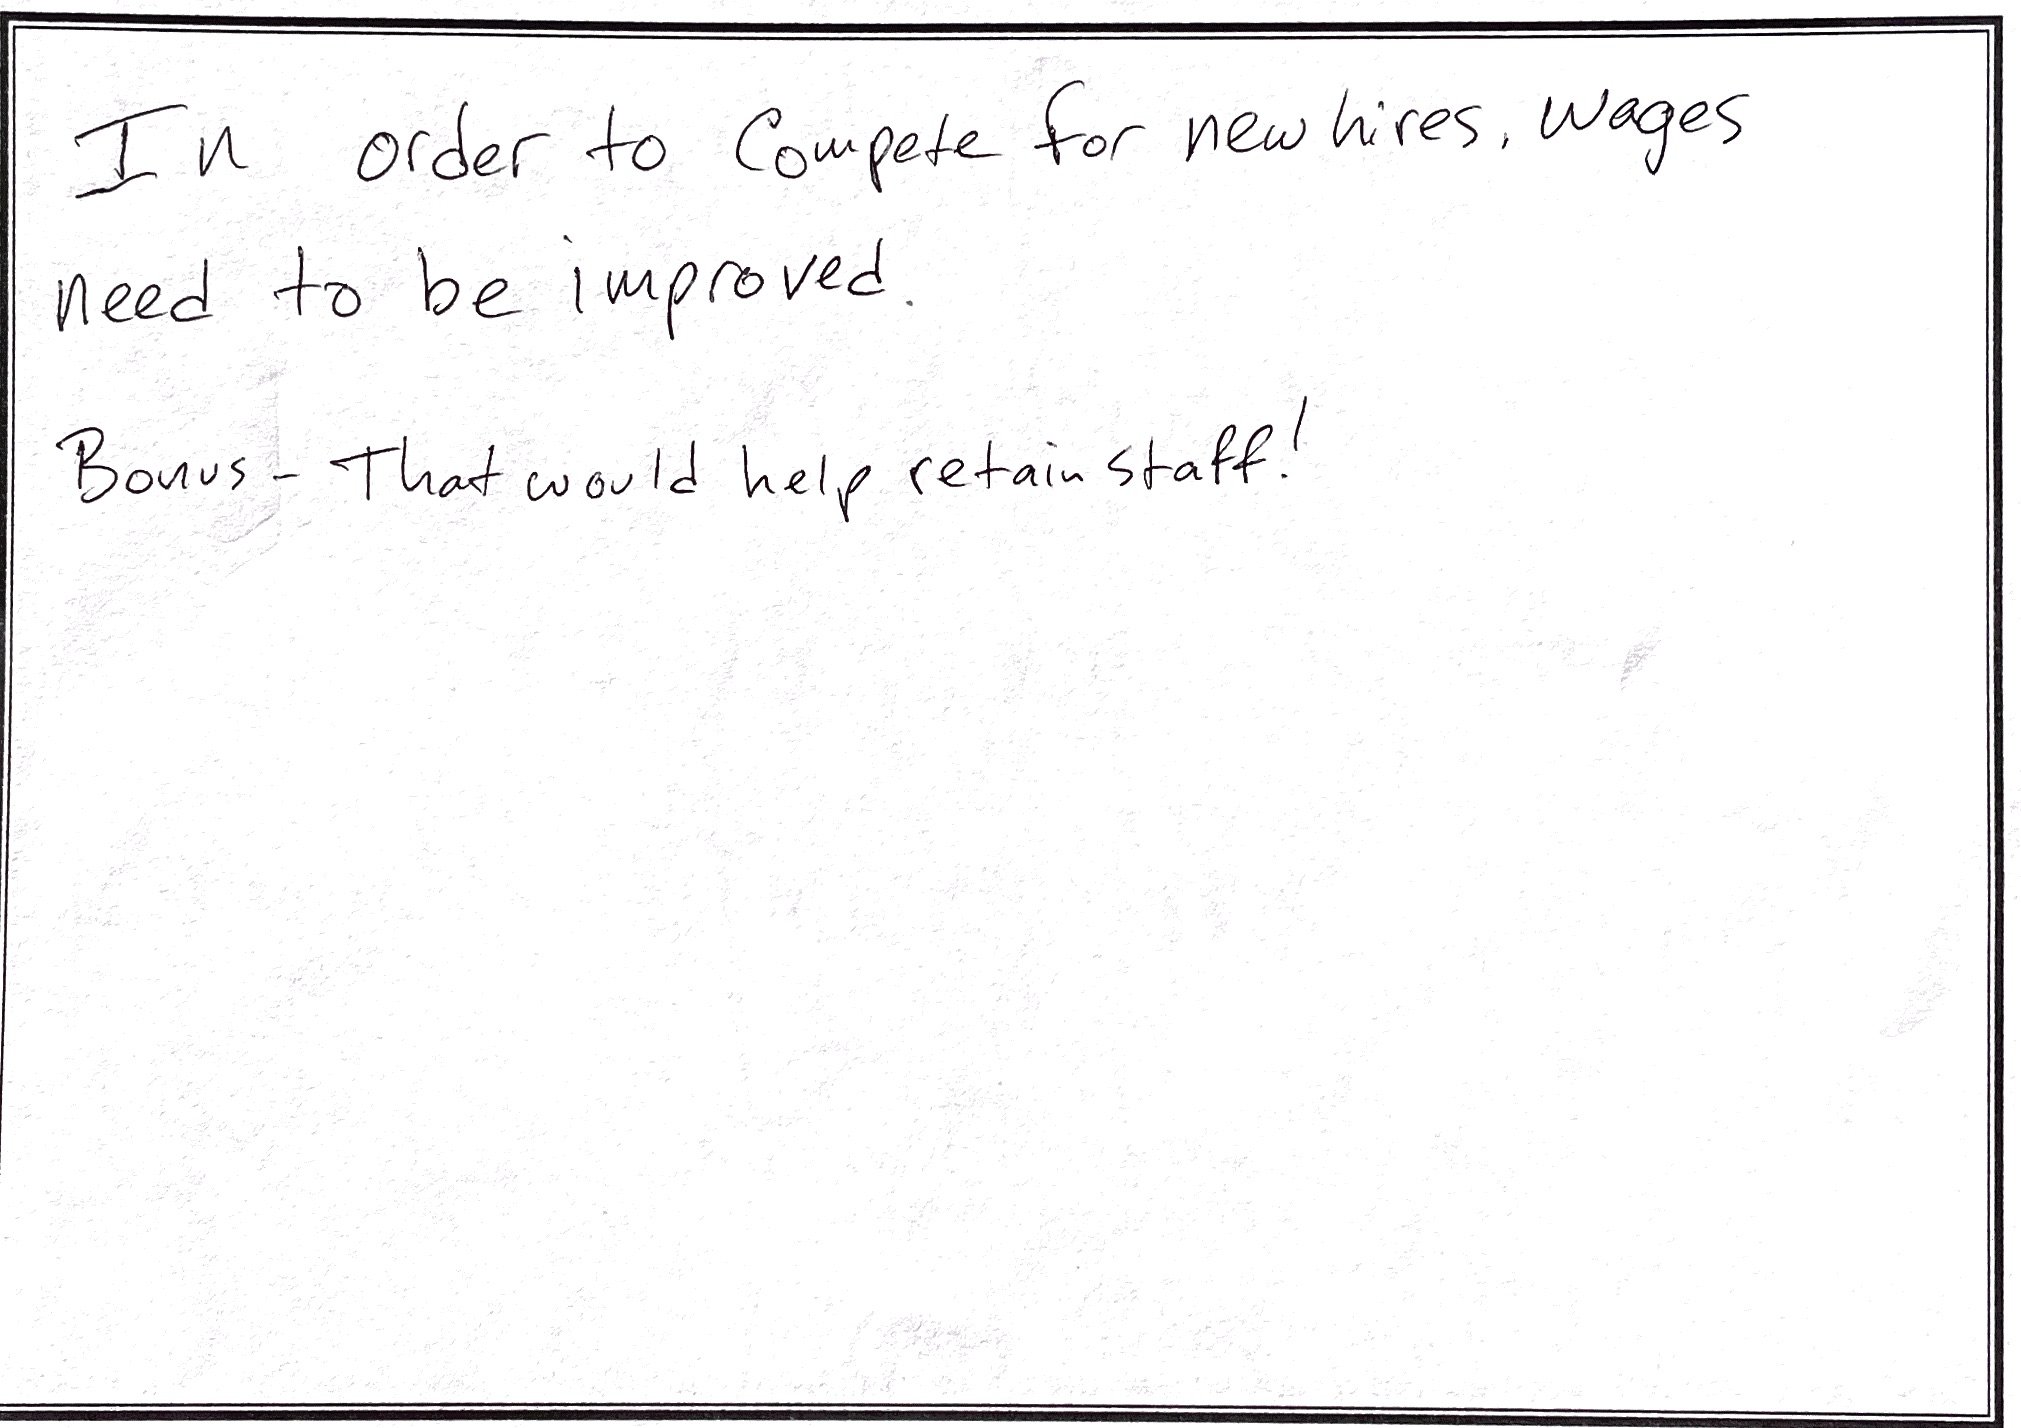 In order to Compete for new hires, wages
need to be improved.
Bonus - That would help retain staff!